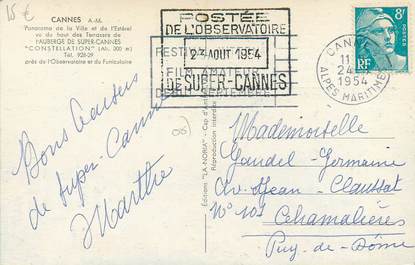 15 €
CANNES A.-M.
Panorama de la Ville et de l'Estérel
vu du haut des Terrasses de
l'AUBERGE DE SUPER-CANNES
"CONSTELLATION" (Alt. 300 m)
Tél. 928-29
près de l'Observatoire et du Funiculaire
POSTÉE
DE L'OBSERVATOIRE
23 AOUT 1954
DE SUPER-CANNES
FILM AMATEUR
8F
RF
CANNES
11
24
1954
ALPES MARITIMES
(06)
Bons baisers
de Super-Cannes
Marthe
Editions "LA NORIA"
Reproduction interdite
Mademoiselle
Gaudel Germaine
Av. Jean-Claussat
N° 107
Chamalières
Puy-de-Dôme